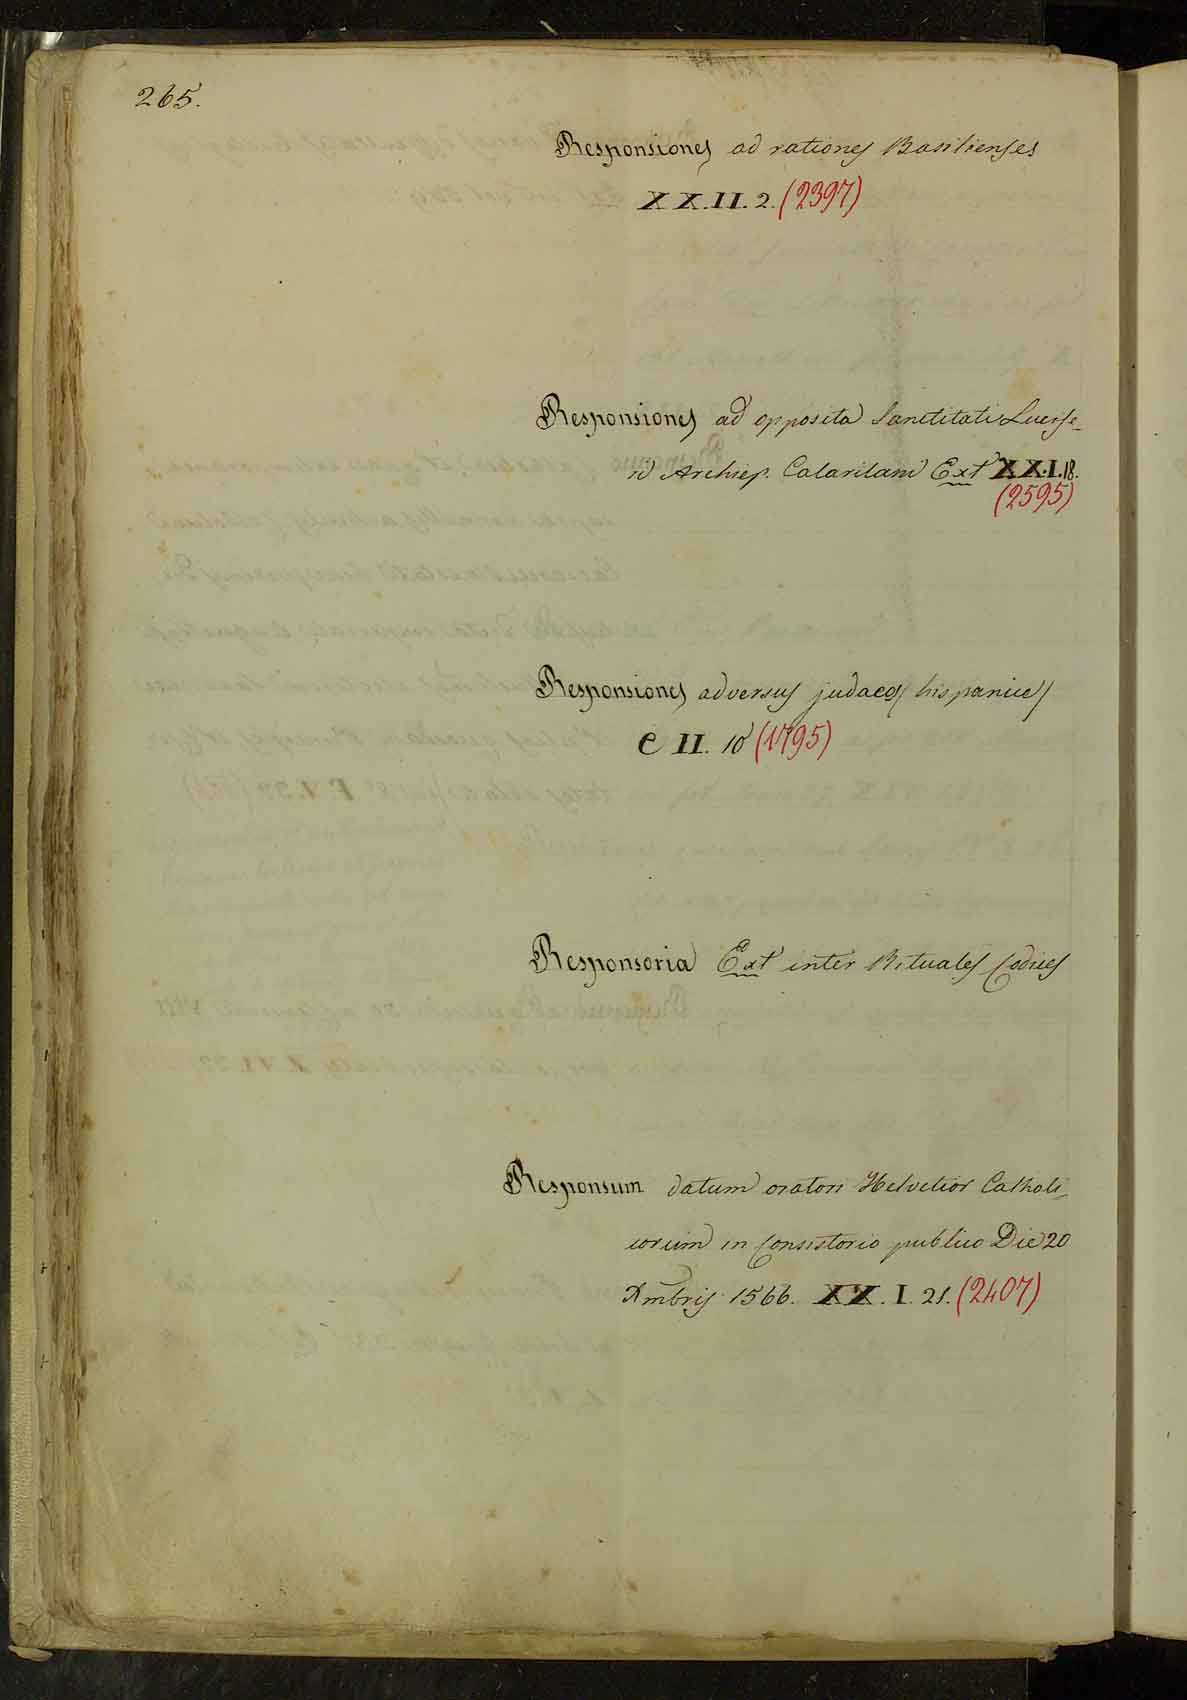 265.
Responsiones ad rationes Basilienses
XX.II.2. (2397)
Responsiones ad opposita Sanctitati Lucife-
ri Archiep. Calaritani Ext XX.I.18.
(2595)
Responsiones adversus judaeos (hispanice)
e II. 10 (1795)
Responsoria Ext inter Rituales Codices
Responsum datum oratori Helvetior Catholi-
corum in Consistorio publico Die 20
Xmbris 1566. XX.I.21. (2407)